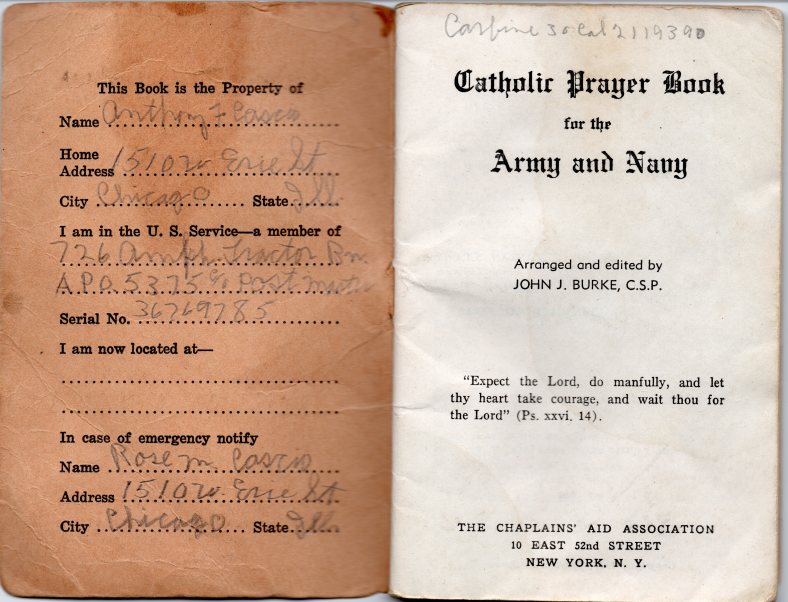 This Book is the Property of
Name Anthony F Cascio
Home
Address 1510 W Erie St
City Chicago State Ill.
I am in the U. S. Service—a member of
726 Amph. Tractor Bn
A.P.O. 5375 c/o Post Master
Serial No. 36769785
I am now located at—
In case of emergency notify
Name Rose M. Cascio
Address 1510 W Erie St
City Chicago State Ill.
Carbine 30 Cal 2119390
Catholic Prayer Book
for the
Army and Navy
Arranged and edited by
JOHN J. BURKE, C.S.P.
"Expect the Lord, do manfully, and let
thy heart take courage, and wait thou for
the Lord" (Ps. xxvi. 14).
THE CHAPLAINS' AID ASSOCIATION
10 EAST 52nd STREET
NEW YORK, N. Y.